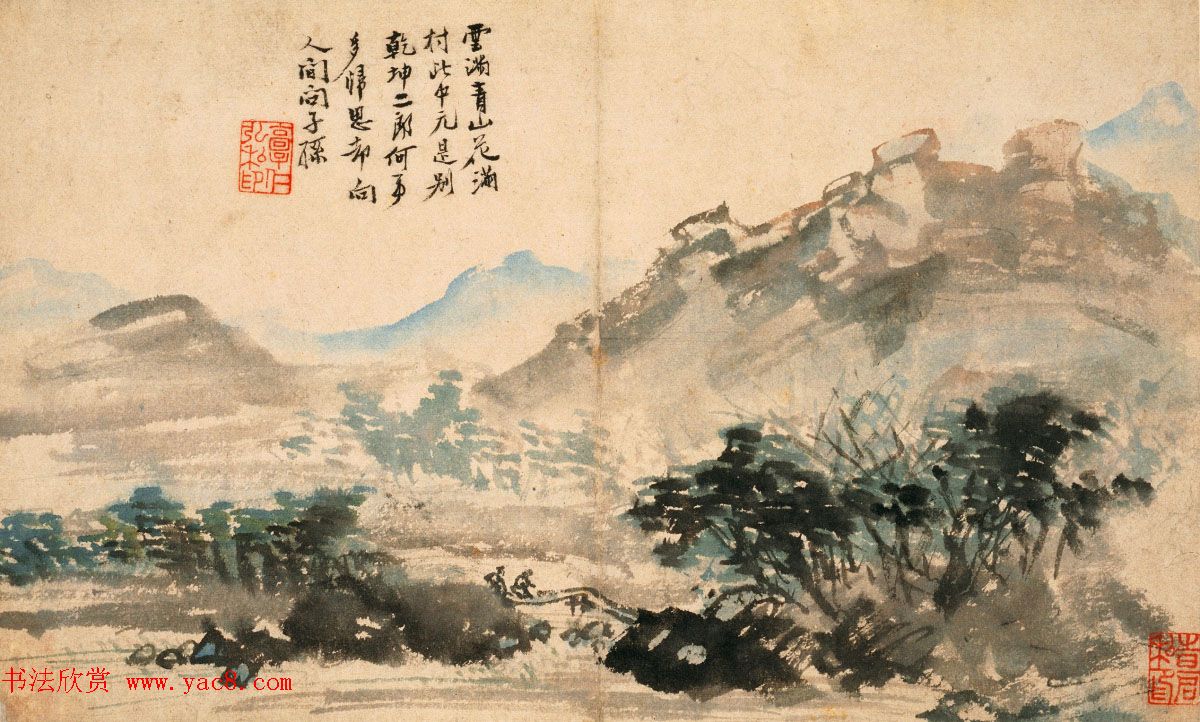 雲滿青山花滿
村此中元是別
乾坤二郎何事
多歸思却向
人間問子孫
书法欣赏 www.yac8.com